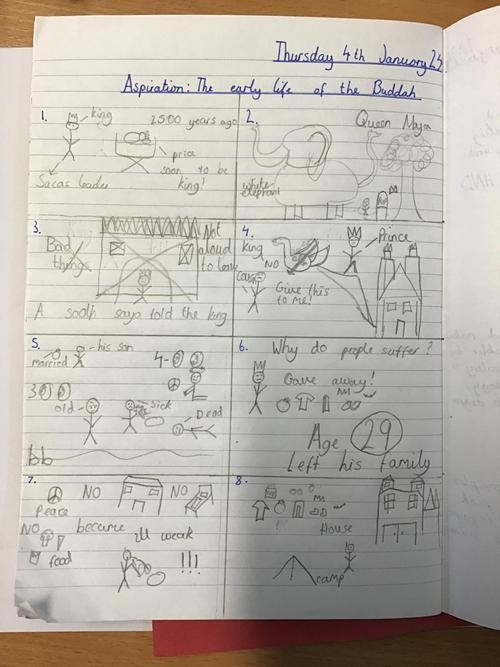 Thursday 4th January 24
Aspiration: The early life of the Buddah
1.
king
2500 years ago
price
soon to be
king!
Sacas leader
2.
Queen Maya
white
elephant
3.
Bad
things
Not
aloud
to leave
A sooth saya told the king
4.
king
NO
Prince
Give this
to me!
5.
his son
married
4-
3
old
Sick
Dead
bb
6.
Why do people suffer?
Gave away!
Age 29
Left his family
7.
NO
NO
Peace
NO
became ill weak
food
!!!
8.
House
camp